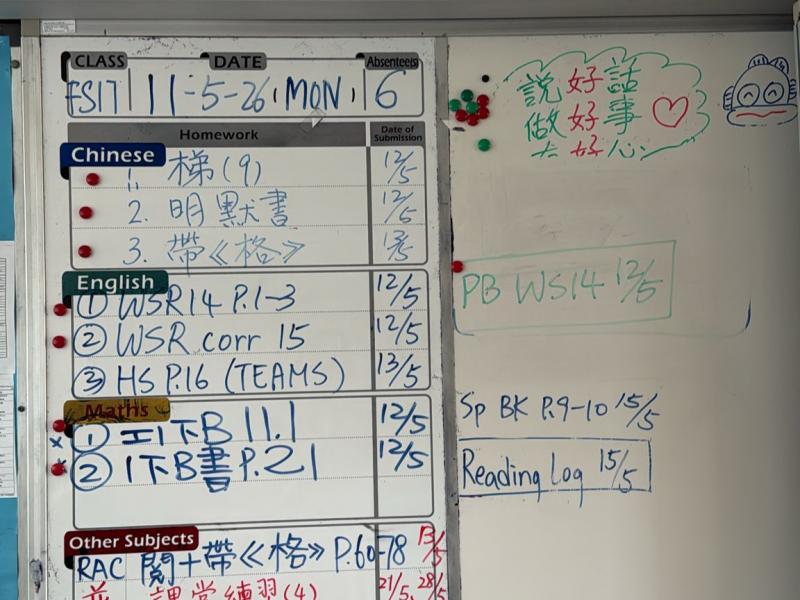 CLASS DATE Absentee(s)
11-5-26 MON 6
Homework Date of Submission
Chinese
1. 梯(9) 12/5
2. 明默書 12/5
3. 帶《格》
English
① WSR14 P.1-3 12/5
② WSR corr 15 12/5
③ HS P.16 (TEAMS) 13/5
Maths
① 工1下B 11.1 12/5
② 1下B書 P.21 12/5
Other Subjects
RAC 閱十帶《格》 P.60-78 13/5
課堂練習(4) 21/5, 28/5
說好話
做好事
好心
PB WS14 12/5
Sp BK P.9-10 15/5
Reading Log 15/5